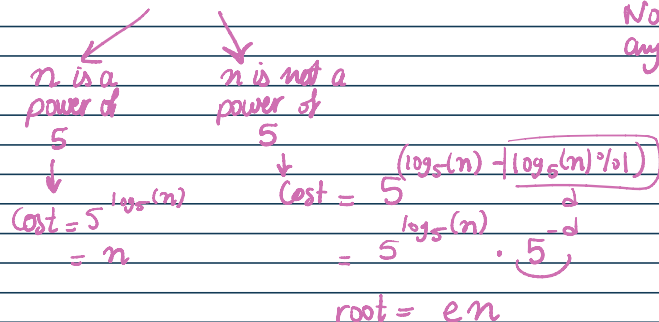 No
any
n is a
power of
5
Cost = 5^log₅(n)
= n
n is not a
power of
5
Cost = 5^(log₅(n) - |log₅(n)%1|)
d
= 5^log₅(n) · 5^-d
root = en